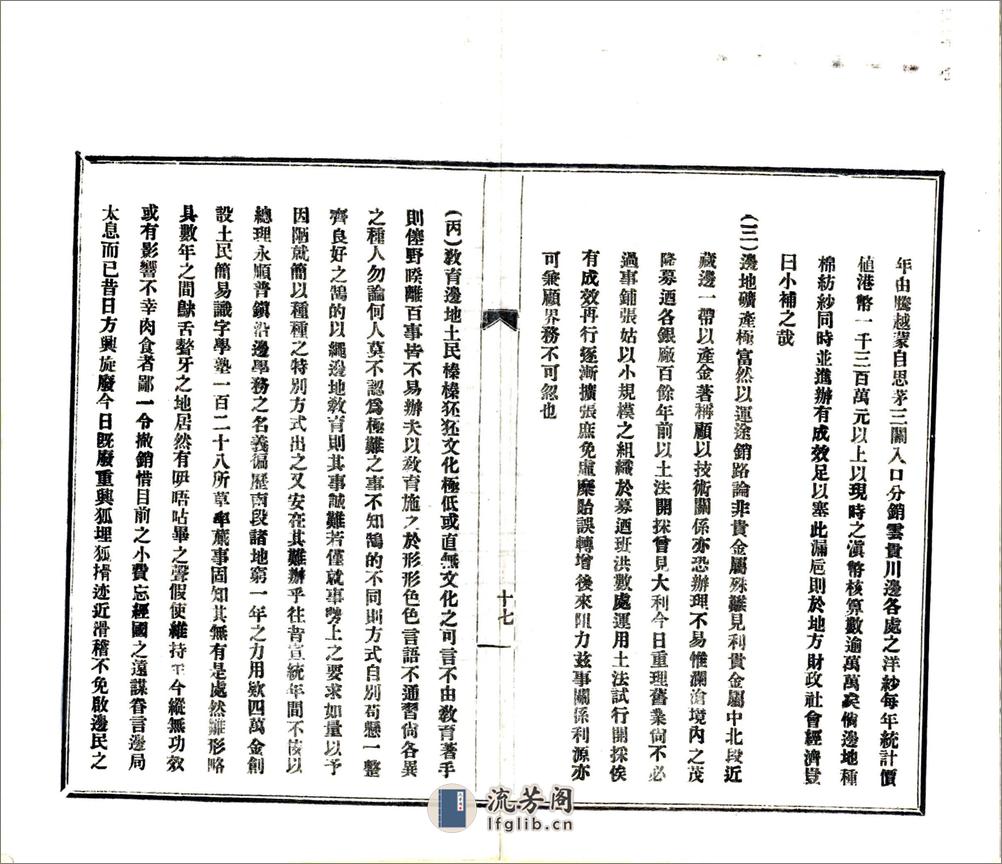 年由騰越蒙自思茅三關入口分銷雲貴川邊各處之洋紗每年統計價
値港幣一千三百萬元以上以現時之滇幣核算數逾萬萬矣倘邊地種
棉紡紗同時並進辦有成效足以塞此漏巵則於地方財政社會經濟豈
曰小補之哉
(三)邊地礦產極富然以運途銷路論非貴金屬殊難見利貴金屬中北段近
藏邊一帶以產金著稱顧以技術關係亦恐辦理不易惟瀾滄境內之茂
隆募迺各銀廠百餘年前以土法開採曾見大利今日重理舊業尙不必
過事鋪張姑以小規模之組織於募迺班洪數處運用土法試行開採俟
有成效再行逐漸擴張庶免虛糜貽誤轉增後來阻力茲事關係利源亦
可兼顧界務不可忽也
十七
(丙)敎育邊地土民榛榛狉狉文化極低或直無文化之可言不由敎育著手
則僿野睽離百事皆不易辦夫以敎育施之於形形色色言語不通習尙各異
之種人勿論何人莫不認爲極難之事不知鵠的不同則方式自別苟懸一整
齊良好之鵠的以繩邊地敎育則其事誠難若僅就事勢上之要求如量以予
因陋就簡以種種之特別方式出之又安在其難辦乎往昔宣統年間不佞以
總理永順普鎭沿邊學務之名義徧歷南段諸地窮一年之力用欵四萬金創
設土民簡易識字學塾一百二十八所草率蕆事固知其無有是處然雛形略
具數年之間鴃舌聱牙之地居然有吚唔呫畢之聲假使維持至今縱無功效
或有影響不幸肉食者鄙一令撤銷惜目前之小費忘經國之遠謀眷言邊局
太息而已昔日方興旋廢今日既廢重興狐埋狐搰迹近滑稽不免啟邊民之
流芳阁
lfglib.cn